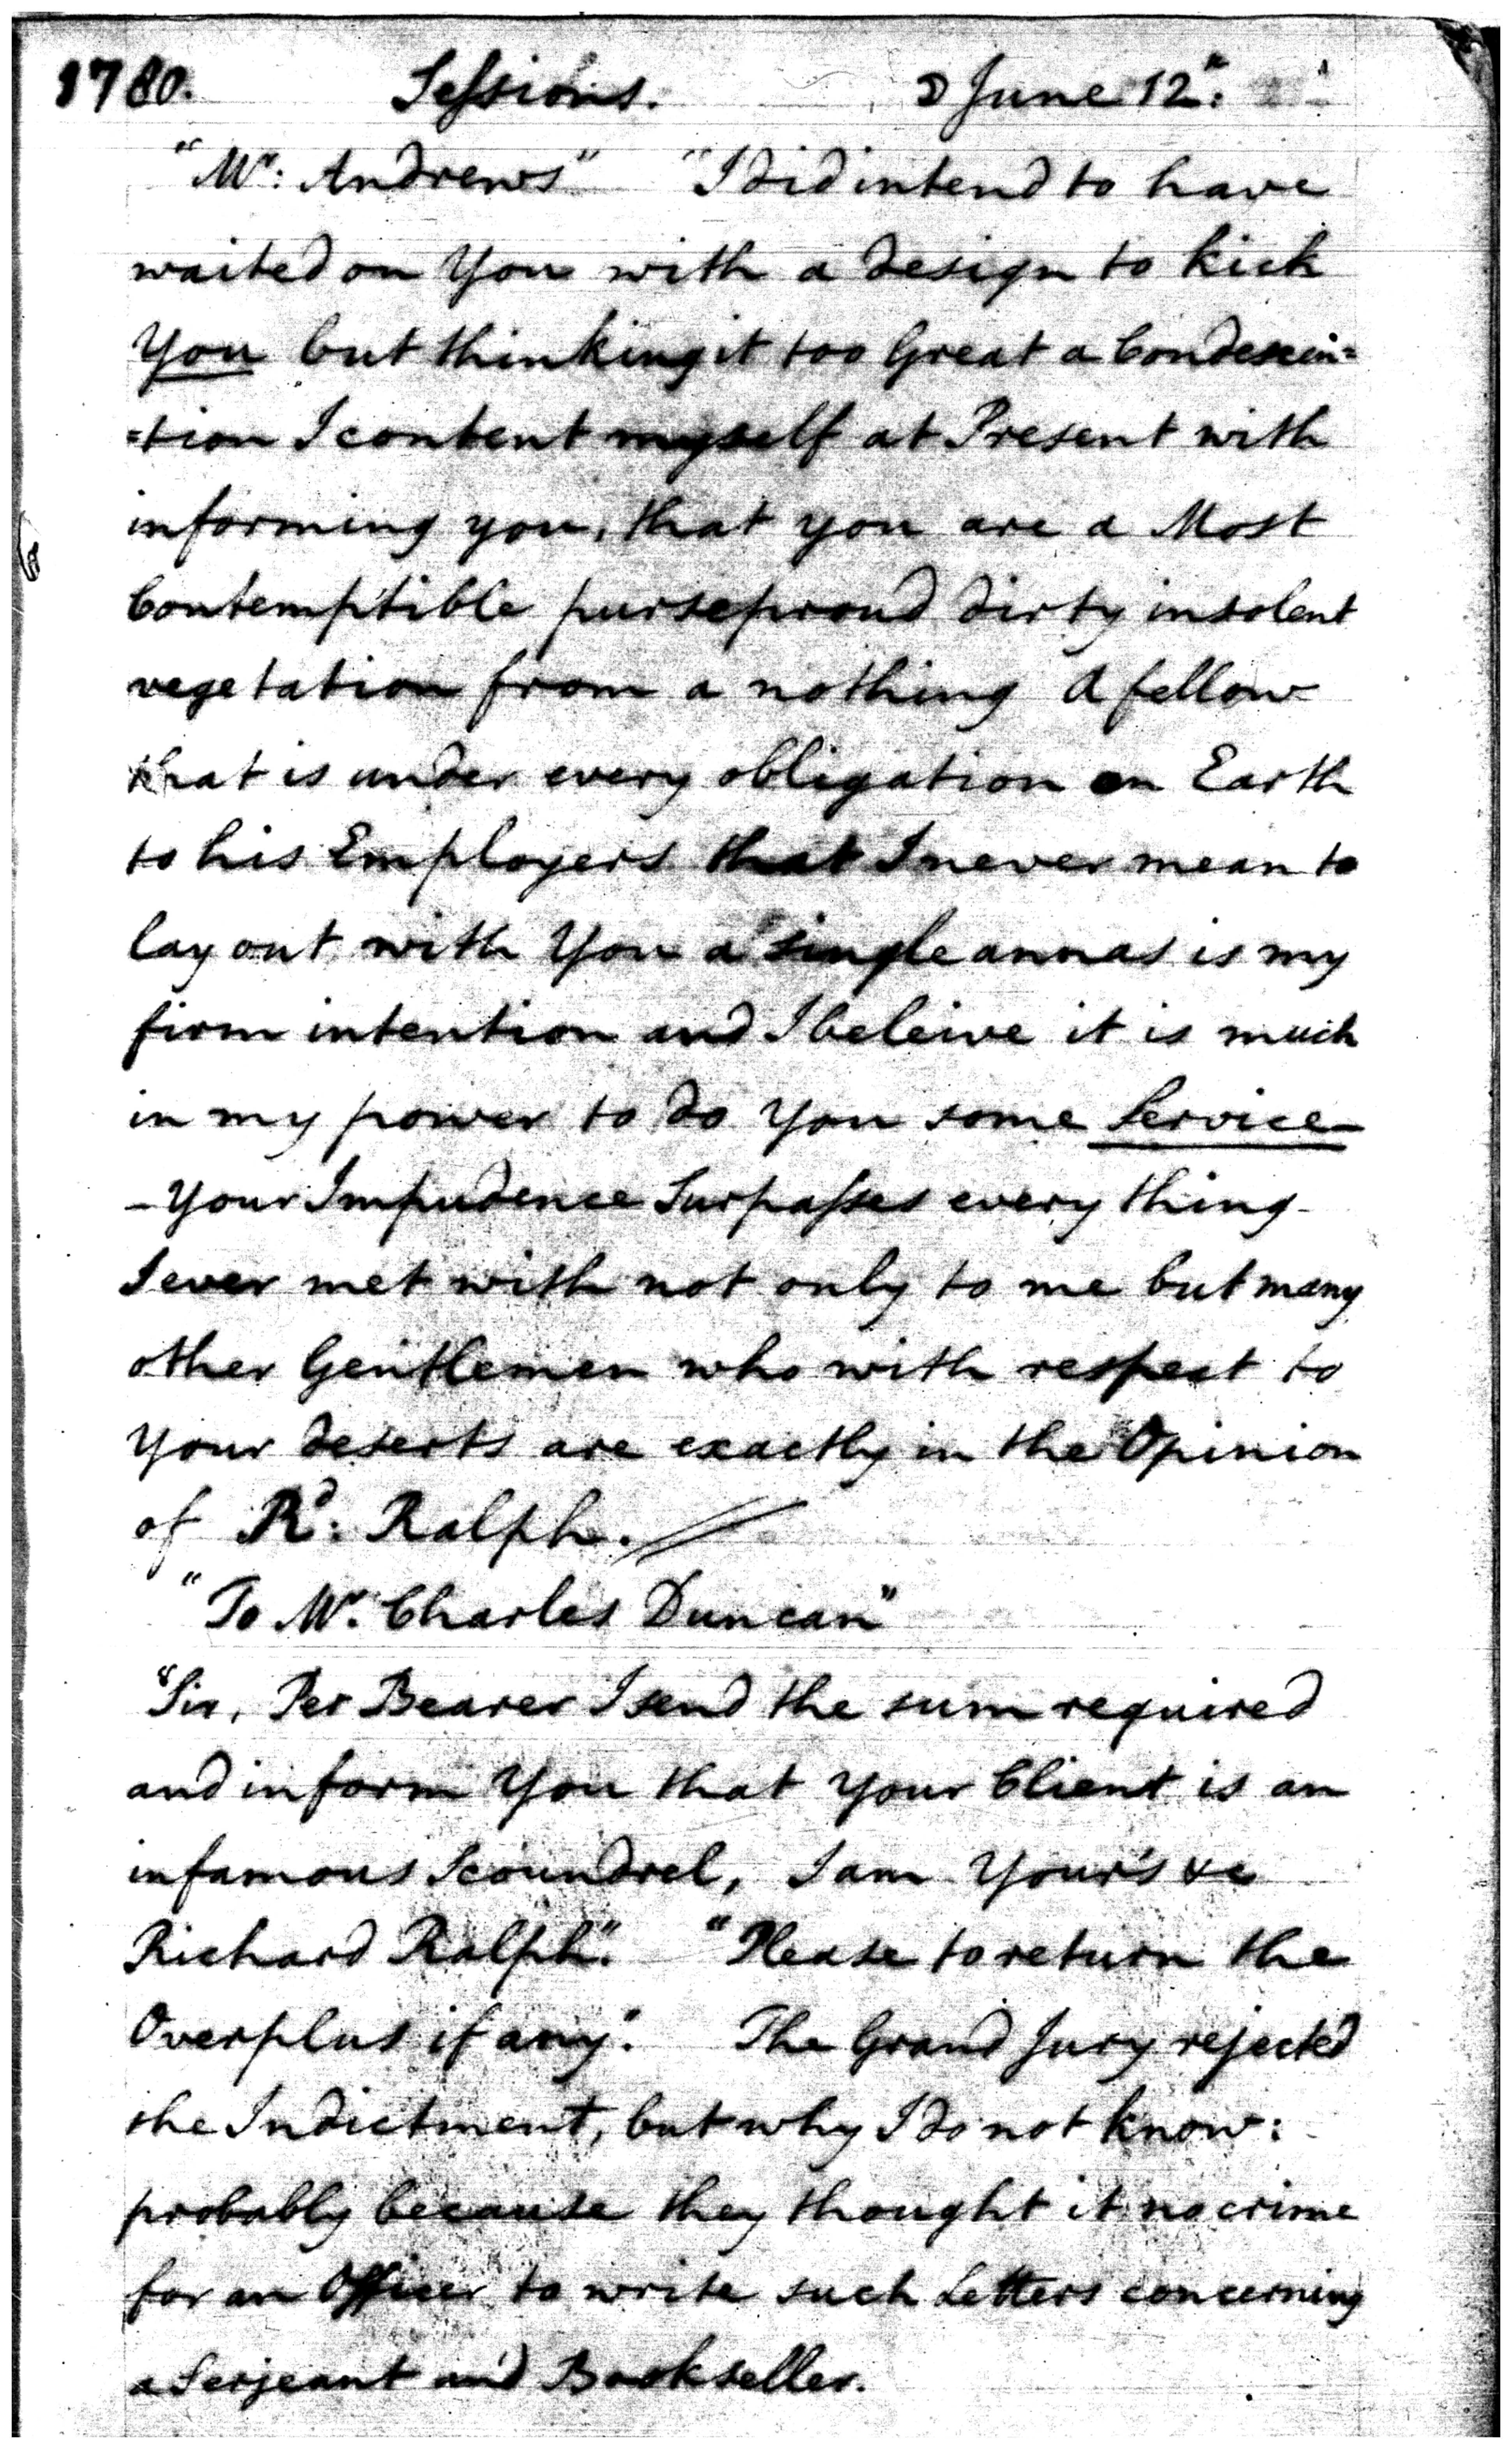 1780. Sessions. ☽ June 12th:
"Mr: Andrews" "I did intend to have
waited on You with a design to kick
You but thinking it too Great a Condescen=
=tion I content myself at Present with
informing you, that you are a Most
Contemptible purseproud dirty insolent
vegetation from a nothing A fellow
that is under every obligation on Earth
to his Employers that I never mean to
lay out with You a single annas is my
firm intention and I beleive it is much
in my power to do You some Service—
– Your Impudence Surpasses every thing
I ever met with not only to me but many
other Gentlemen who with respect to
Your deserts are exactly in the Opinion
of Rd: Ralph.
"To Mr: Charles Duncan"
"Sir, Per Bearer I send the sum required
and inform You that your Client is an
infamous Scoundrel, I am Your's &c
Richard Ralph". "Please to return the
Overplus if any". The Grand Jury rejected
the Indictment, but why I do not know:
probably because they thought it no crime
for an Officer to write such Letters concerning
a Serjeant and Bookseller.